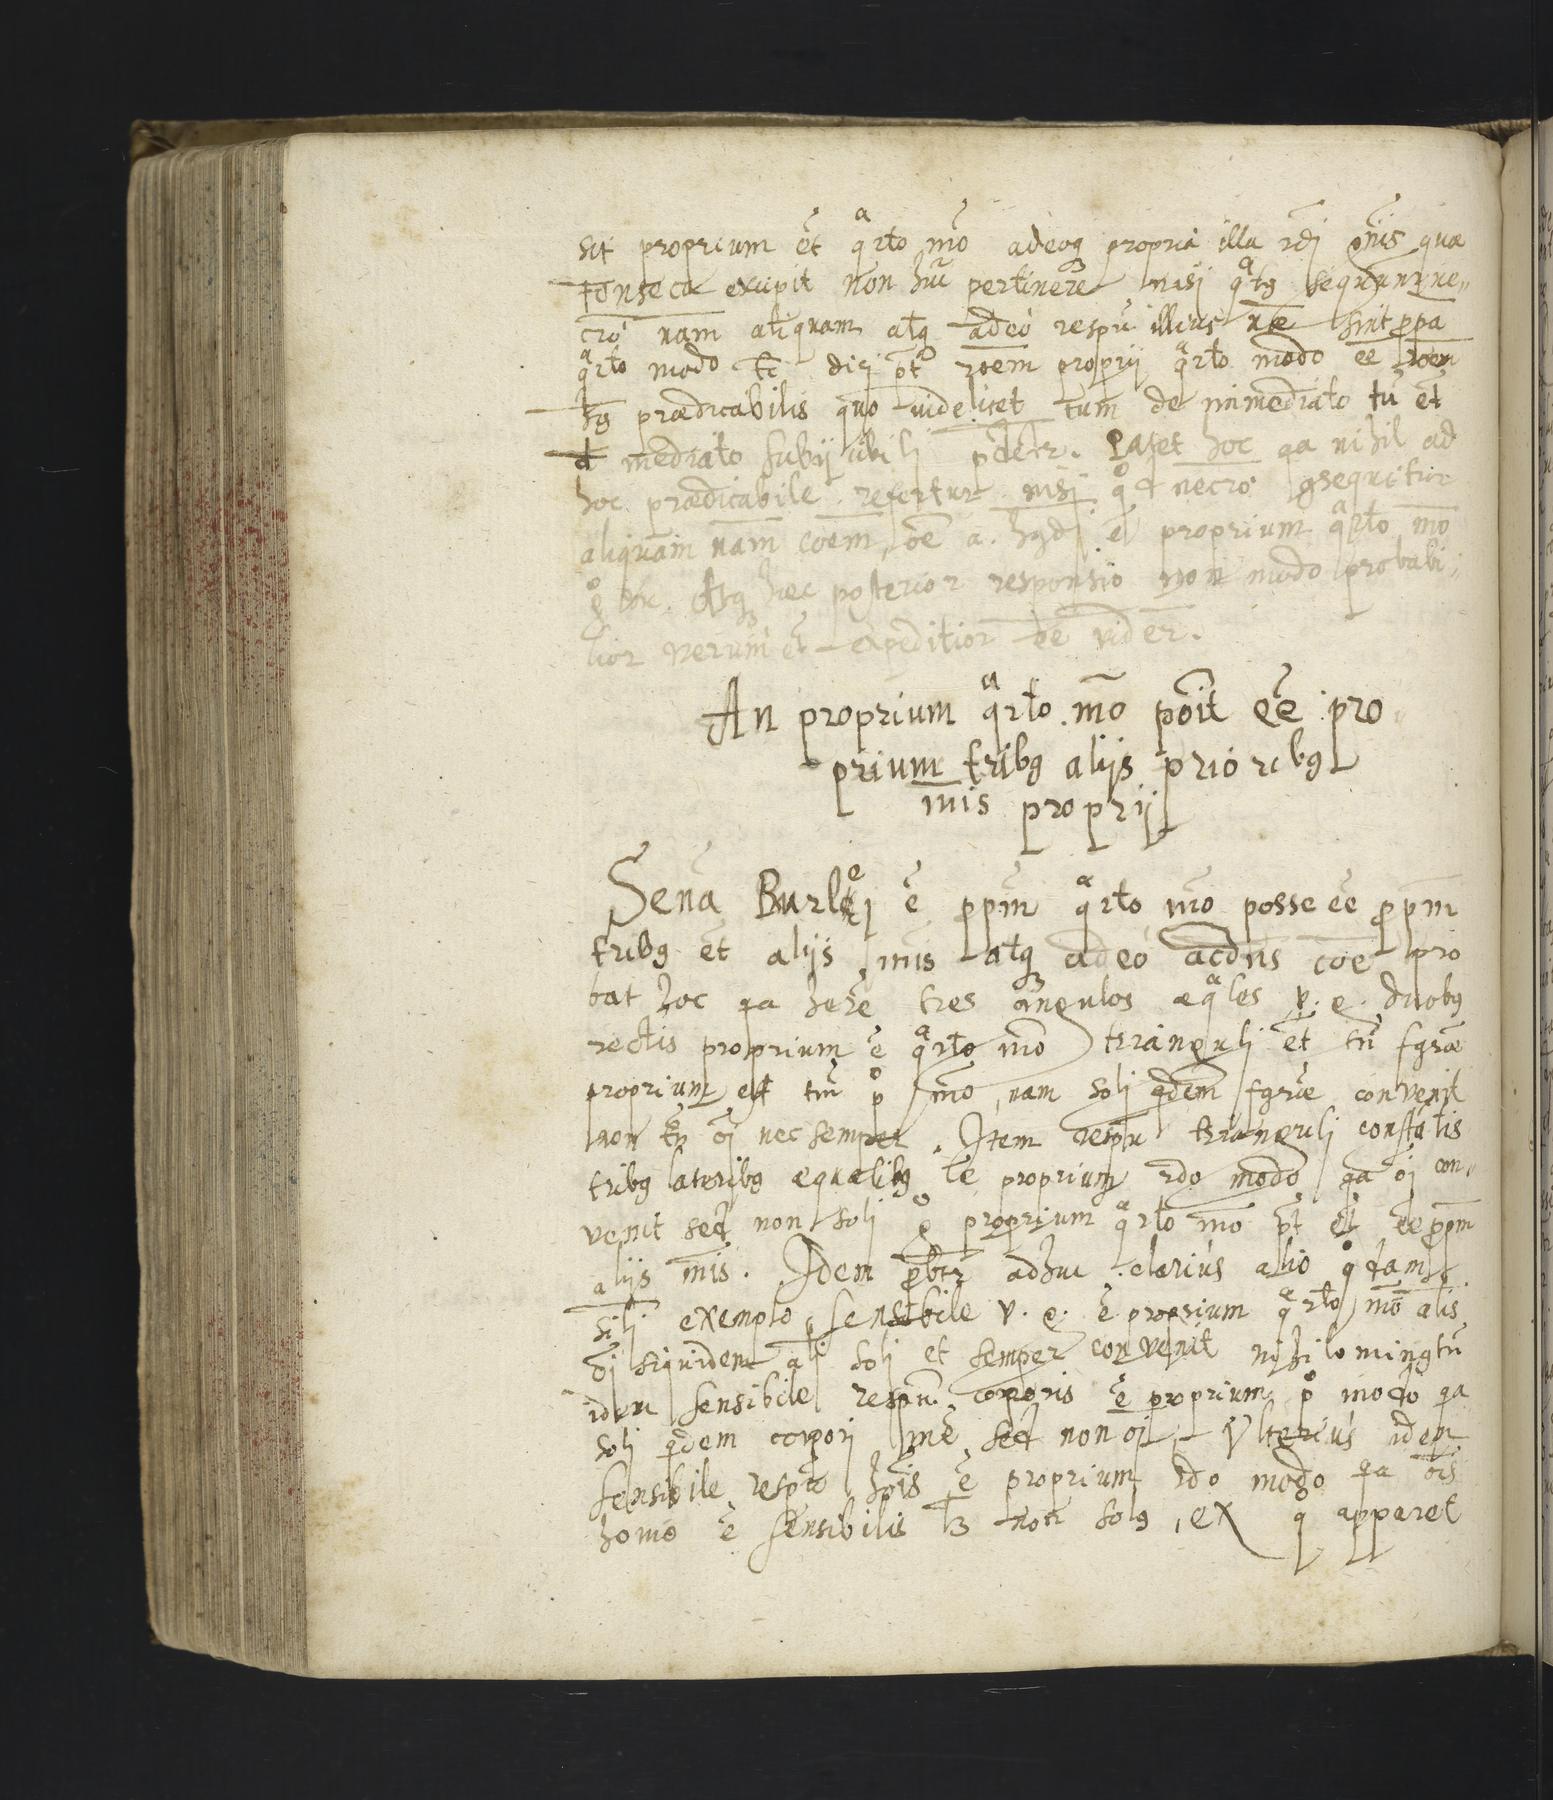 sit proprium ẽt qᵃrto mõ adeoq; propria illa rdj õnis quæ
Fonseca excipit non hũc pertinere nisi qᵃtg sequuntur ne„
crõ nam̃ aliquam atq; adeo respũ illius nẽ sint ꝓpa
qᵃrto modo dici põt rõem proprij qᵃrto modo ẽe rõem
hg prædicabilis quo videlicet tum de immediato tũ ẽt
d mediato subijcibili p̃der. Patet hoc qa nihil ad
hoc prædicabile refertur nisi qᵒd necrõ gsequitur
aliquam nam̃ cõem, õe a. hgdj ẽ proprium qᵃrto mõ
gᵒ &c. Atq; hæc posterior responsio non modo probabi„
lior verum ẽt expeditior ẽe videt̃.
An proprium qᵃrto mõ põit ẽe pro
prium tribg alijs prioribg
mis̃ proprij
Senã Burlej ẽ ppm̃ qᵃrto mõ posse ẽe ꝓpm̃
tribg ẽt alijs mis̃ atq; adeo acdns̃ cõe pro
bat hoc qa herẽ tres angulos æqᵃles v. g. duobg
rectis proprium ẽ qᵃrto mõ trianguli ẽt tñ fgræ
proprium est tñ pᵒ mõ, nam soli qdem fgræ convenit
non tñ õj nec semper. Item respũ trianguli constãtis
tribg lateribg æqualibg ẽe proprium 2do modo qa õj con„
venit sed non soli gᵒ proprium qᵃrto mõ pt̃ ẽt ẽe ꝓpm̃
alijs mis̃. Idem ꝓbt̃r adhuc clarius alio qᵒdam
sĩlj exemplo, sensibile v. g. ẽ proprium qᵃrto mõ alis̃
õj siquidem alj soli et semper convenit nihilomingtũ
idem sensibile respũ corporis ẽ proprium pᵒ modo qa
soli qdem corpori inẽ sed non õj. Vlterius idem
sensibile respũ hõis ẽ proprium 2do modo qa õis
homo ẽ sensibilis lz non solg, ex qᵒ apparet